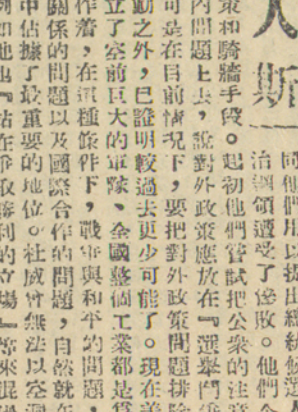 人斯
同他們用以拔出總統候選
治綱領遭受了慘敗。他們
策和騎牆手段。起初他們嘗試把公衆的注意
內問題上去，說對外政策應放在『選舉鬥
可是在目前情況下，要把對外政策問題排
動之外，已證明較過去更少可能了。現在美
立了空前巨大的軍隊、全國整個工業都是爲
作着，在這種條件下，戰爭與和平的問題，
關係的問題以及國際合作的問題，自然就在
中佔據了最重要的地位。杜威曾無法以空洞
例如他也『站在爭取勝利的立場』常來混